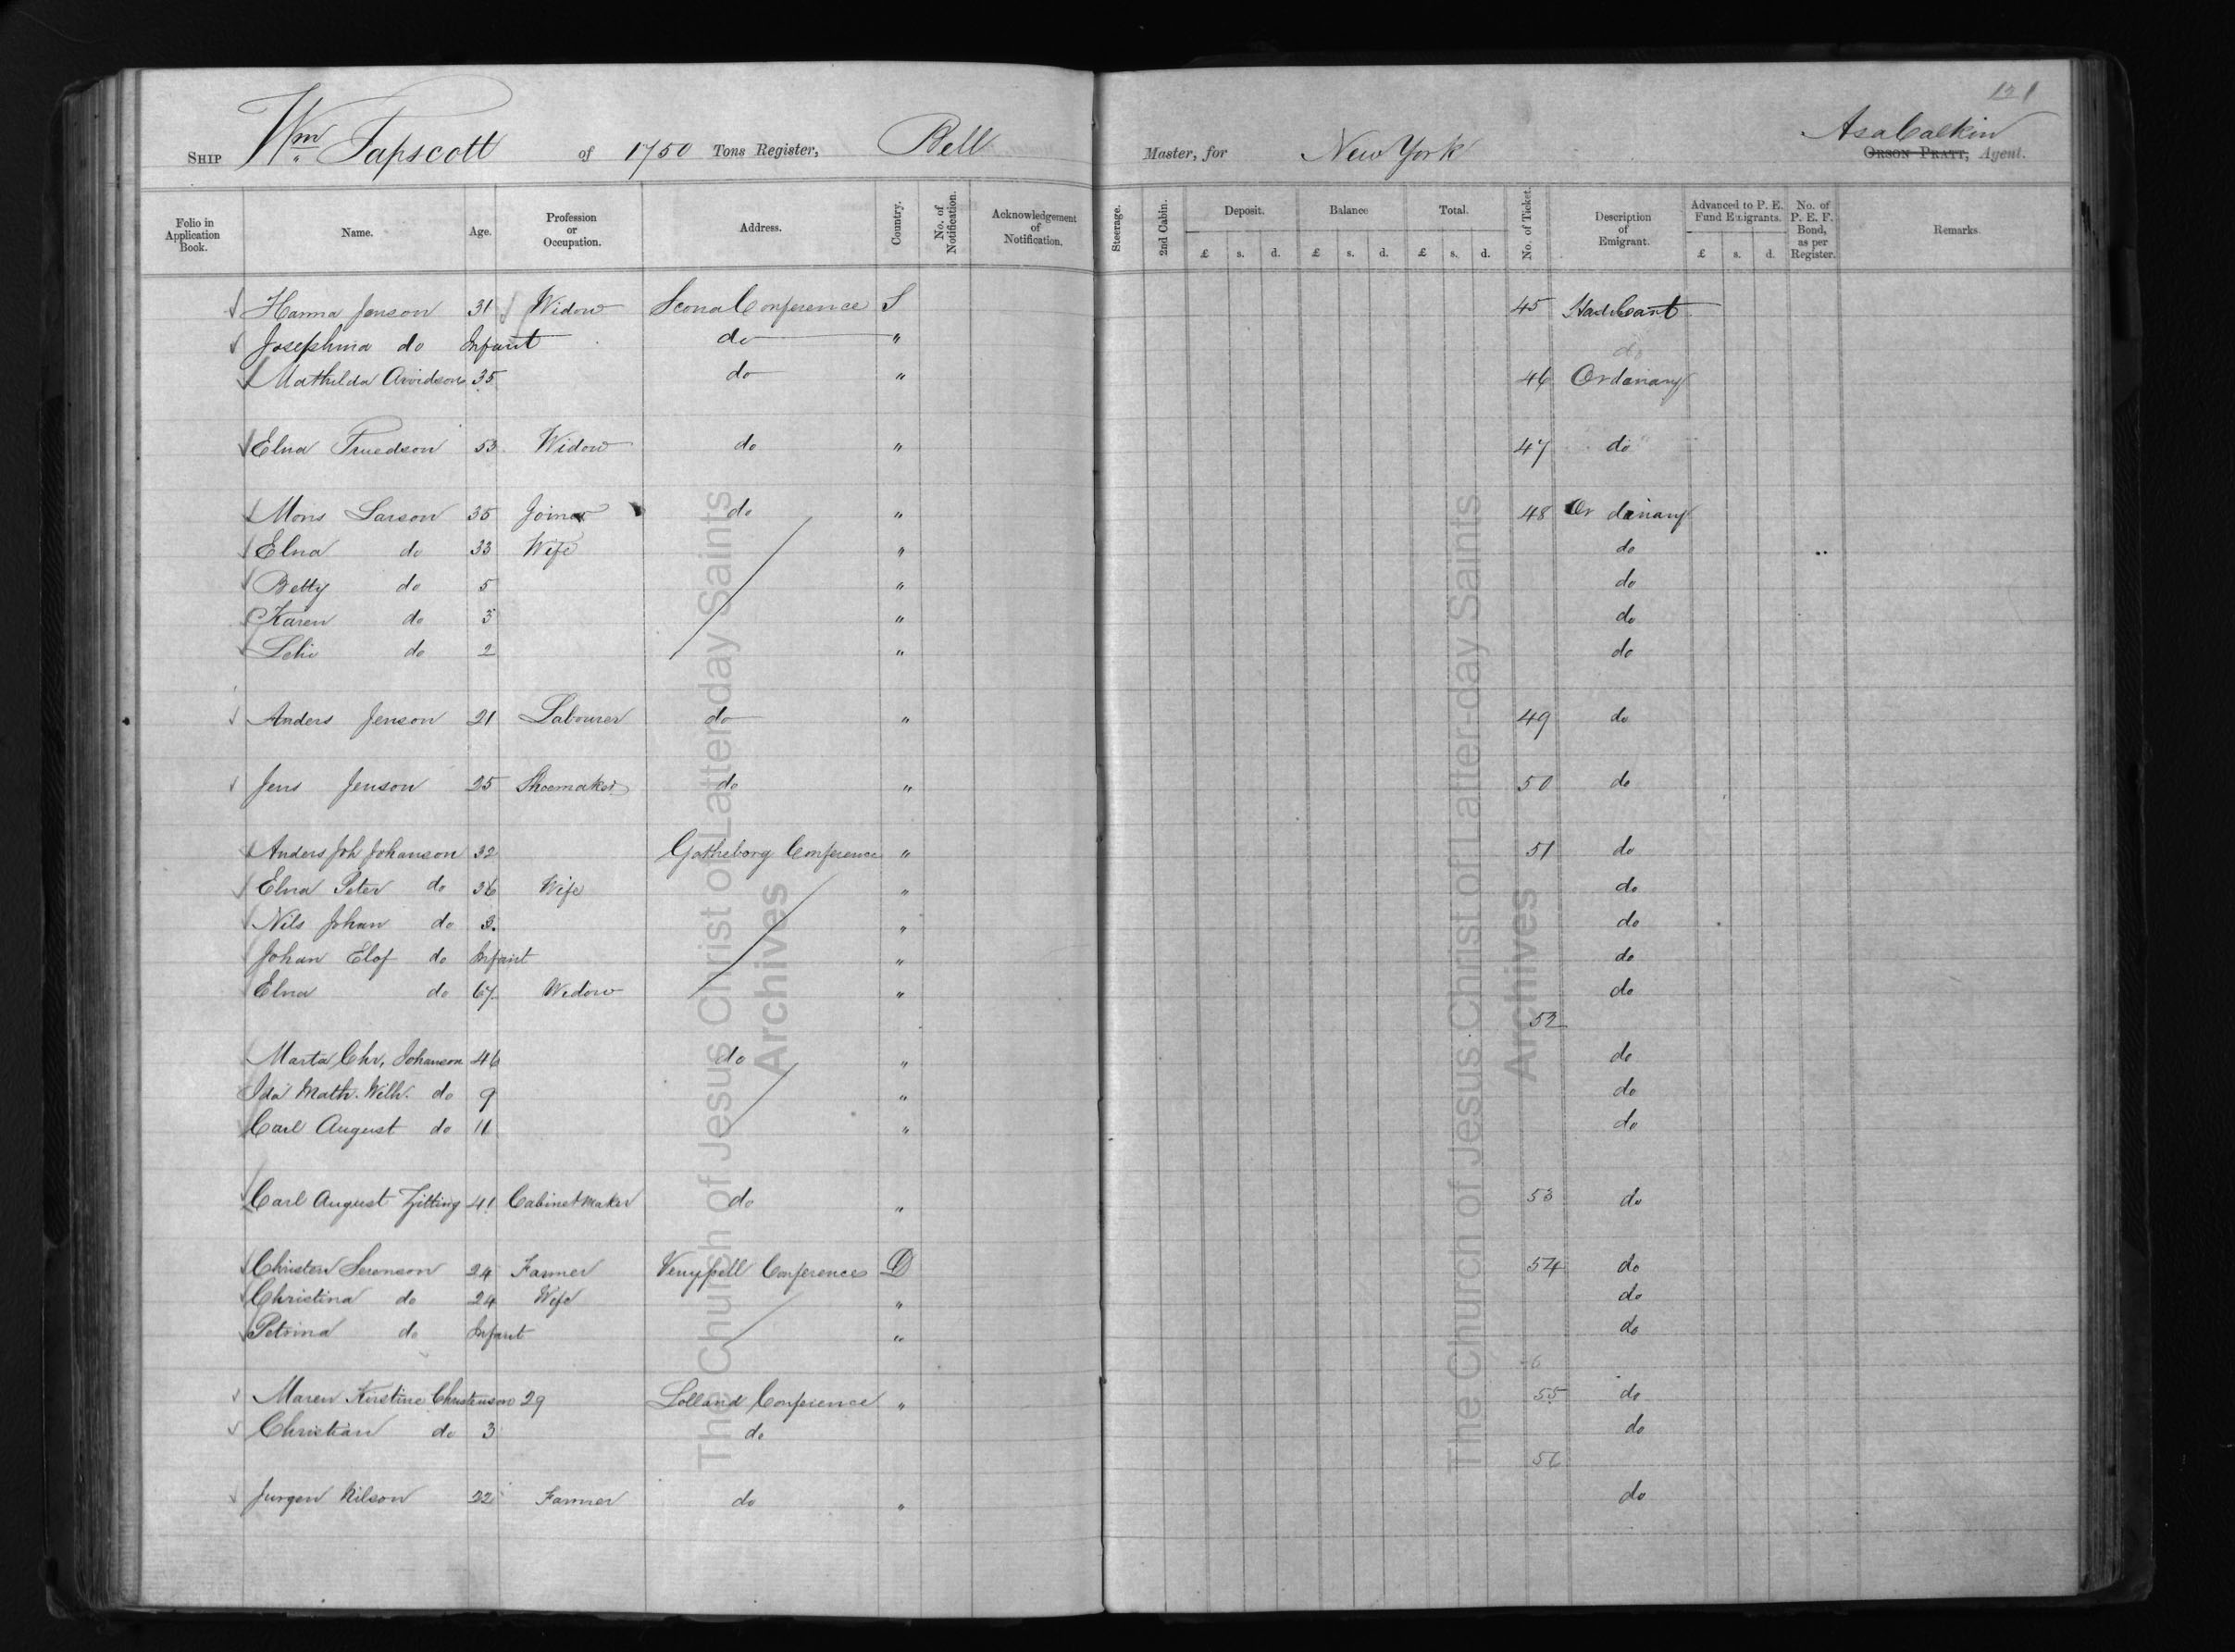 121
SHIP Wm Tapscott of 1750 Tons Register, Bell Master, for New York Asa Calkin ORSON PRATT, Agent.
Folio in Application Book. Name. Age. Profession or Occupation. Address. Country. No. of Notification. Acknowledgement of Notification. Steerage. 2nd Cabin. Deposit. £ s. d. Balance £ s. d. Total. £ s. d. No. of Ticket. Description of Emigrant. Advanced to P. E. Fund Emigrants. £ s. d. No. of P. E. F. Bond, as per Register. Remarks.
Hanna Jenson 31 Widow Scona Conference S 45 Handcart
Josephina do Infant do " do
Mathilda Arvidson 35 do " 46 Ordinary
Elna Truedson 53 Widow do " 47 do
Mons Larson 35 Joiner do " 48 Ordinary
Elna do 33 Wife " do
Betty do 5 " do
Karen do 3 " do
Lehi do 2 " do
Anders Jenson 21 Labourer do " 49 do
Jens Jenson 25 Shoemaker do " 50 do
Anders Joh Johanson 32 Gotheborg Conference " 51 do
Elna Peter do 36 Wife " do
Nils Johan do 3 " do
Johan Elof do Infant " do
Elna do 67 Widow " do
52
Marta Chr. Johanson 46 do " do
Ida Math. Wilh. do 9 " do
Carl August do 11 " do
Carl August Zitting 41 Cabinet maker do " 53 do
Christen Sorenson 24 Farmer Conference D 54 do
Christina do 24 Wife " do
Petrina do Infant " do
Maren Kirstine Christenson 29 Lolland Conference " 55 do
Christian do 3 do do
56
Jurgen Nilson 22 Farmer do " do
The Church of Jesus Christ of Latter-day Saints
Archives
The Church of Jesus Christ of Latter-day Saints
Archives